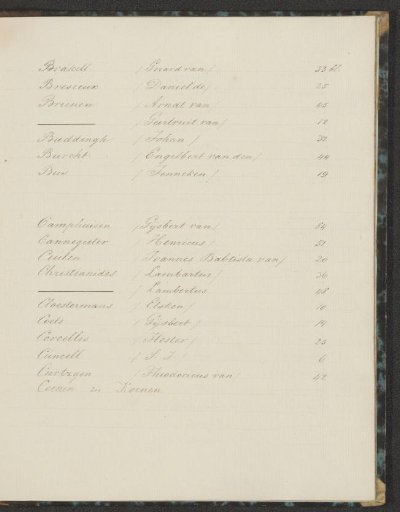 Brakell (Gerard van) 33 bl.
Bresieux (Daniel de) 25
Brienen (Arndt van) 65
——— (Geertruit van) 12
Buddingh (Johan) 32
Burcht (Engelbert van den) 44
Bus (Jenneken) 19
Camphuisen (Gysbert van) 54
Cannegieter (Henricus) 51
Ceulen (Joannes Babtista van) 20
Christianides (Lambartus) 36
——— (Lambertus 48
Cloestermans (Elsken) 10
Coets (Gysbert) 14
Corcellis (Hester) 25
Cuncell (S. J.) 6
Curtzgen (Theodoricus van) 42
Coenen zie Koenen